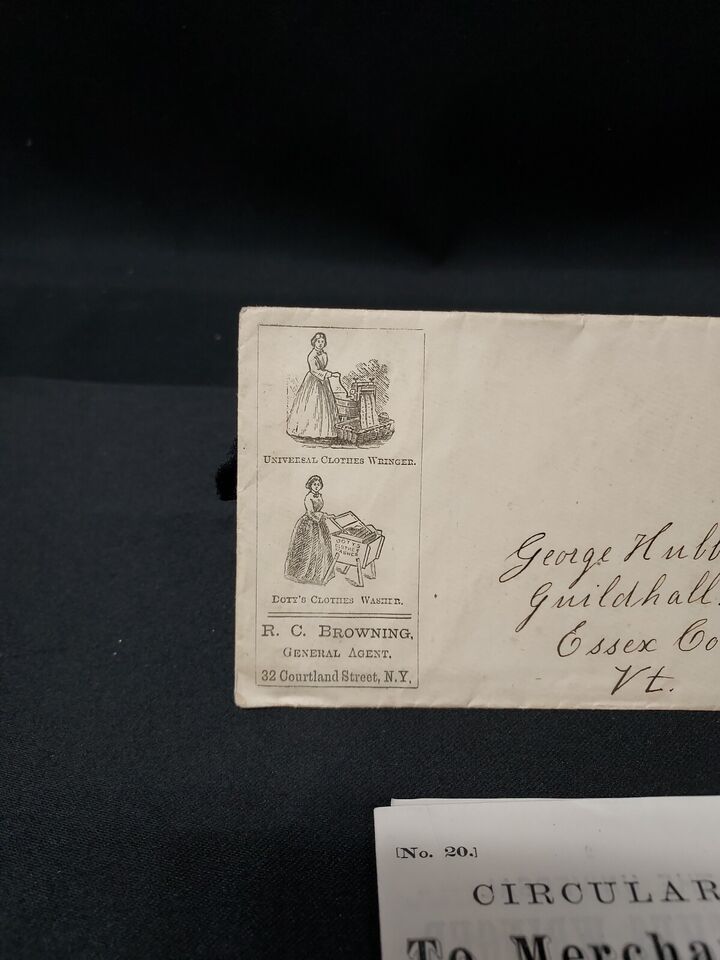 UNIVERSAL CLOTHES WRINGER.
DOTY'S
CLOTHES
WASHER
DOTY'S CLOTHES WASHER.
R. C. BROWNING,
GENERAL AGENT.
32 Courtland Street, N.Y.
George Hubb
Guildhall.
Essex Co
Vt.
[No. 20.]
CIRCULAR
To Mercha